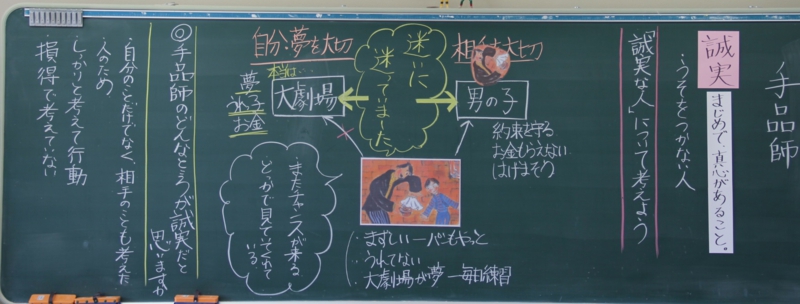 手品師
誠実
まじめで、真心があること。
・うそをつかない人
「誠実な人」について考えよう
相手を大切
男の子
約束を守る
お金もらえない
はげまそう
迷いに
迷っていました
自分・夢を大切
本当は…
大劇場
夢
うれっ子
お金
・まずしい パンもやっと
・うれてない
・大劇場が夢 毎日練習
・またチャンスが来る
どこかで見ていてくれて
いる
◎手品師のどんなところが、誠実だと
思いますか
・自分のことだけでなく、相手のことも考えた
・人のため
・しっかりと考えて行動
・損得で考えていない